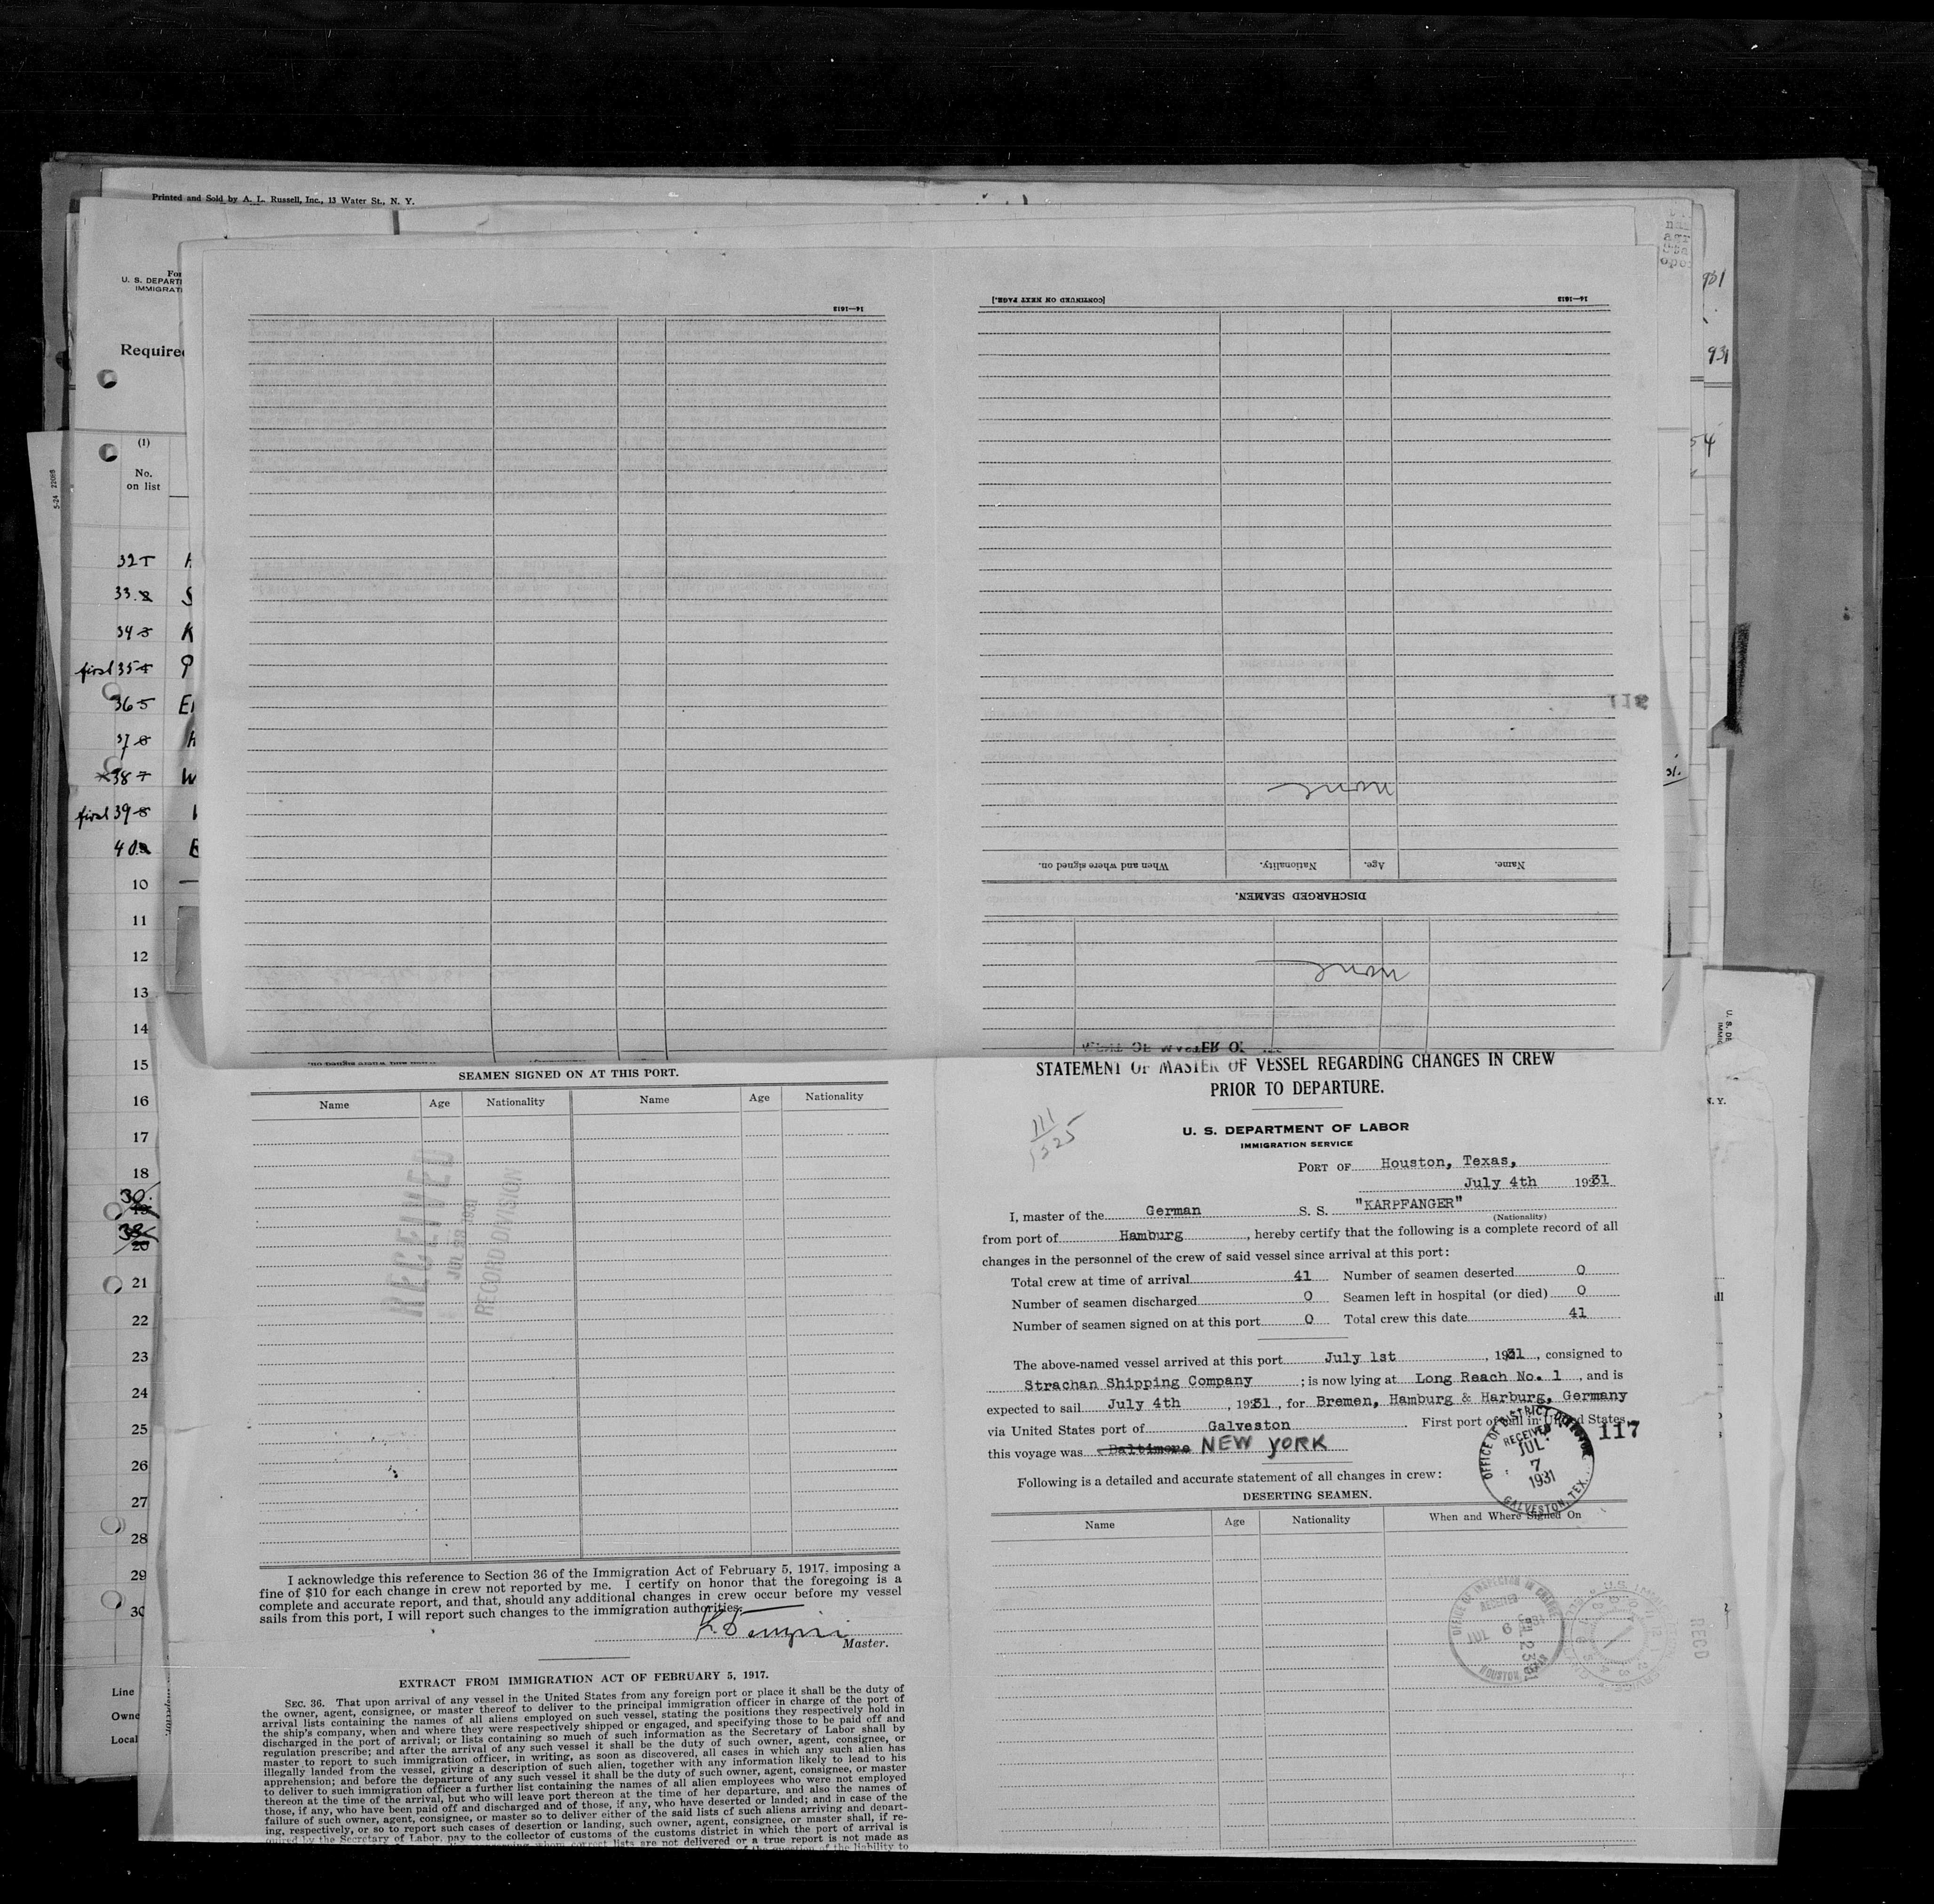 Printed and Sold by A. L. Russell, Inc., 13 Water St., N. Y.
U. S. DEPARTM
IMMIGRATI
Required
(1)
No.
on list
5-24 22086
32
33
34
first 35
36
37
38
first 39
40
10
11
12
13
14
15
16
17
18
21
22
23
24
25
26
27
28
29
30
Line
Owne
Local
14—1613
[CONTINUED ON NEXT PAGE.]
14—1613
none
When and where signed on.
Nationality.
Age.
Name.
DISCHARGED SEAMEN.
none
118
SEAMEN SIGNED ON AT THIS PORT.
Name Age Nationality Name Age Nationality
RECEIVED
RECORD DIVISION
I acknowledge this reference to Section 36 of the Immigration Act of February 5, 1917, imposing a
fine of $10 for each change in crew not reported by me. I certify on honor that the foregoing is a
complete and accurate report, and that, should any additional changes in crew occur before my vessel
sails from this port, I will report such changes to the immigration authorities.
Master.
EXTRACT FROM IMMIGRATION ACT OF FEBRUARY 5, 1917.
SEC. 36. That upon arrival of any vessel in the United States from any foreign port or place it shall be the duty of
the owner, agent, consignee, or master thereof to deliver to the principal immigration officer in charge of the port of
arrival lists containing the names of all aliens employed on such vessel, stating the positions they respectively hold in
the ship's company, when and where they were respectively shipped or engaged, and specifying those to be paid off and
discharged in the port of arrival; or lists containing so much of such information as the Secretary of Labor shall by
regulation prescribe; and after the arrival of any such vessel it shall be the duty of such owner, agent, consignee, or
master to report to such immigration officer, in writing, as soon as discovered, all cases in which any such alien has
illegally landed from the vessel, giving a description of such alien, together with any information likely to lead to his
apprehension; and before the departure of any such vessel it shall be the duty of such owner, agent, consignee, or master
to deliver to such immigration officer a further list containing the names of all alien employees who were not employed
thereon at the time of the arrival, but who will leave port thereon at the time of her departure, and also the names of
those, if any, who have been paid off and discharged and of those, if any, who have deserted or landed; and in case of the
failure of such owner, agent, consignee, or master so to deliver either of the said lists of such aliens arriving and depart-
ing, respectively, or so to report such cases of desertion or landing, such owner, agent, consignee, or master shall, if re-
quired by the Secretary of Labor, pay to the collector of customs of the customs district in which the port of arrival is
STATEMENT OF MASTER OF VESSEL REGARDING CHANGES IN CREW
PRIOR TO DEPARTURE.
111
1325
U. S. DEPARTMENT OF LABOR
IMMIGRATION SERVICE
PORT OF Houston, Texas,
July 4th 1931
I, master of the German S. S. "KARPFANGER"
(Nationality)
from port of Hamburg, hereby certify that the following is a complete record of all
changes in the personnel of the crew of said vessel since arrival at this port:
Total crew at time of arrival 41 Number of seamen deserted 0
Number of seamen discharged 0 Seamen left in hospital (or died) 0
Number of seamen signed on at this port 0 Total crew this date 41
The above-named vessel arrived at this port July 1st, 1931, consigned to
Strachan Shipping Company; is now lying at Long Reach No. 1, and is
expected to sail July 4th, 1931, for Bremen, Hamburg & Harburg, Germany
via United States port of Galveston. First port of call in United States
this voyage was Baltimore NEW YORK
117
OFFICE OF DISTRICT DIRECTOR
RECEIVED
JUL
7
1931
GALVESTON, TEX.
Following is a detailed and accurate statement of all changes in crew:
DESERTING SEAMEN.
Name Age Nationality When and Where Signed On
OFFICE OF INSPECTOR IN CHARGE
RECEIVED
JUL 6
HOUSTON, TEXAS
REC'D